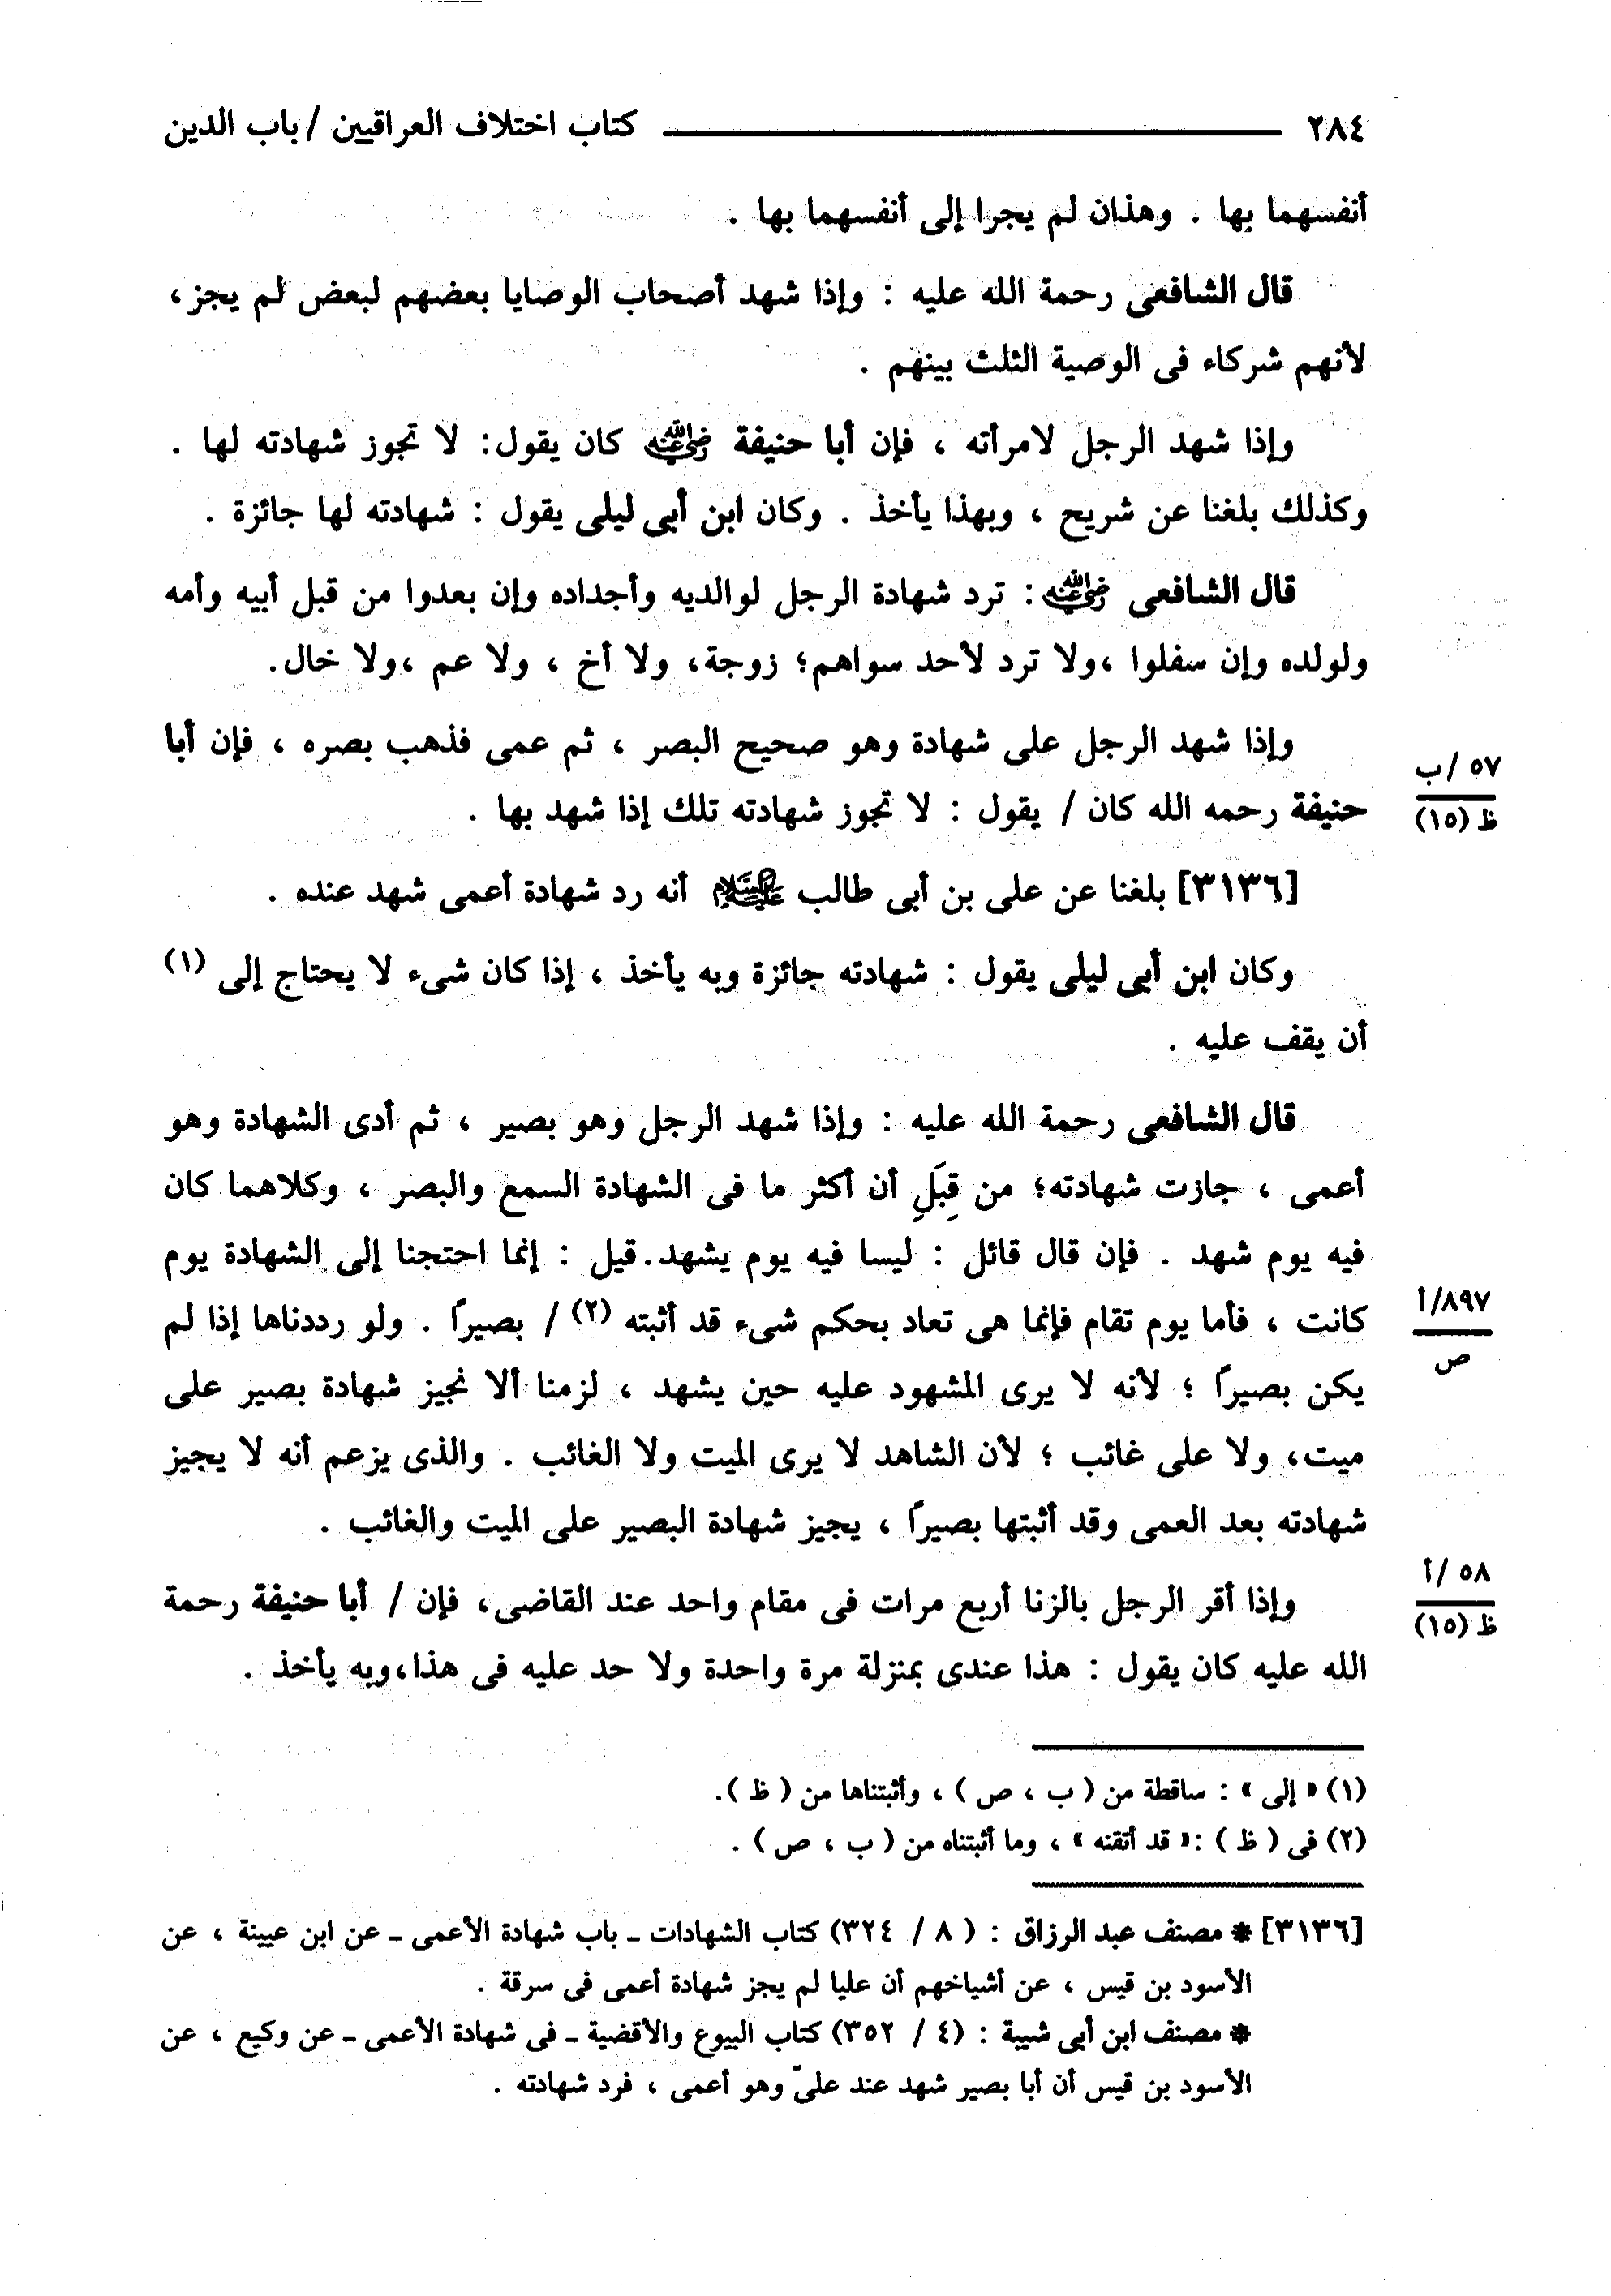 ٢٨٤ كتاب اختلاف العراقيين / باب الدين
أنفسهما بها . وهذان لم يجرا إلى أنفسهما بها .
قال الشافعى رحمة الله عليه : وإذا شهد أصحاب الوصايا بعضهم لبعض لم يجز،
لأنهم شركاء فى الوصية الثلث بينهم .
وإذا شهد الرجل لامرأته ، فإن أبا حنيفة رضي الله عنه كان يقول: لا تجوز شهادته لها .
وكذلك بلغنا عن شريح ، وبهذا يأخذ . وكان ابن أبى ليلى يقول : شهادته لها جائزة .
قال الشافعى رضي الله عنه : ترد شهادة الرجل لوالديه وأجداده وإن بعدوا من قبل أبيه وأمه
ولولده وإن سفلوا ،ولا ترد لأحد سواهم؛ زوجة، ولا أخ ، ولا عم ،ولا خال.
وإذا شهد الرجل على شهادة وهو صحيح البصر ، ثم عمى فذهب بصره ، فإن أبا
٥٧ /ب
ظ (١٥)
حنيفة رحمه الله كان / يقول : لا تجوز شهادته تلك إذا شهد بها .
[٣١٣٦] بلغنا عن على بن أبى طالب عليه السلام أنه رد شهادة أعمى شهد عنده .
وكان ابن أبى ليلى يقول : شهادته جائزة وبه يأخذ ، إذا كان شىء لا يحتاج إلى (١)
أن يقف عليه .
قال الشافعى رحمة الله عليه : وإذا شهد الرجل وهو بصير ، ثم أدى الشهادة وهو
أعمى ، جازت شهادته؛ من قِبَلِ أن أكثر ما فى الشهادة السمع والبصر ، وكلاهما كان
فيه يوم شهد . فإن قال قائل : ليسا فيه يوم يشهد.قيل : إنما احتجنا إلى الشهادة يوم
كانت ، فأما يوم تقام فإنما هى تعاد بحكم شىء قد أثبته (٢) / بصيرًا . ولو رددناها إذا لم
٨٩٧/أ
ص
يكن بصيرًا ؛ لأنه لا يرى المشهود عليه حين يشهد ، لزمنا ألا نجيز شهادة بصير على
ميت، ولا على غائب ؛ لأن الشاهد لا يرى الميت ولا الغائب . والذى يزعم أنه لا يجيز
شهادته بعد العمى وقد أثبتها بصيرًا ، يجيز شهادة البصير على الميت والغائب .
وإذا أقر الرجل بالزنا أربع مرات فى مقام واحد عند القاضى، فإن / أبا حنيفة رحمة
٥٨ /أ
ظ (١٥)
الله عليه كان يقول : هذا عندى بمنزلة مرة واحدة ولا حد عليه فى هذا،وبه يأخذ .
(١) « إلى » : ساقطة من ( ب ، ص ) ، وأثبتناها من ( ظ ).
(٢) فى ( ظ ) :« قد أتقنه » ، وما أثبتناه من ( ب ، ص ) .
[٣١٣٦] * مصنف عبد الرزاق : ( ٨ / ٣٢٤) كتاب الشهادات ـ باب شهادة الأعمى ـ عن ابن عيينة ، عن
الأسود بن قيس ، عن أشياخهم أن عليا لم يجز شهادة أعمى فى سرقة .
* مصنف ابن أبى شيبة : (٤ / ٣٥٢) كتاب البيوع والأقضية ـ فى شهادة الأعمى ـ عن وكيع ، عن
الأسود بن قيس أن أبا بصير شهد عند علىّ وهو أعمى ، فرد شهادته .